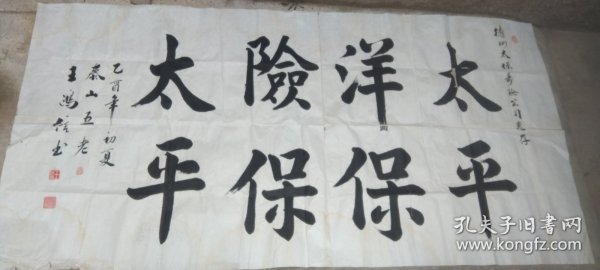 州太保壽險公司惠存
太平
洋保
險保
太平
乙酉年初夏
泰山五老
王鴻书
孔夫子旧书网
www.kongfz.com